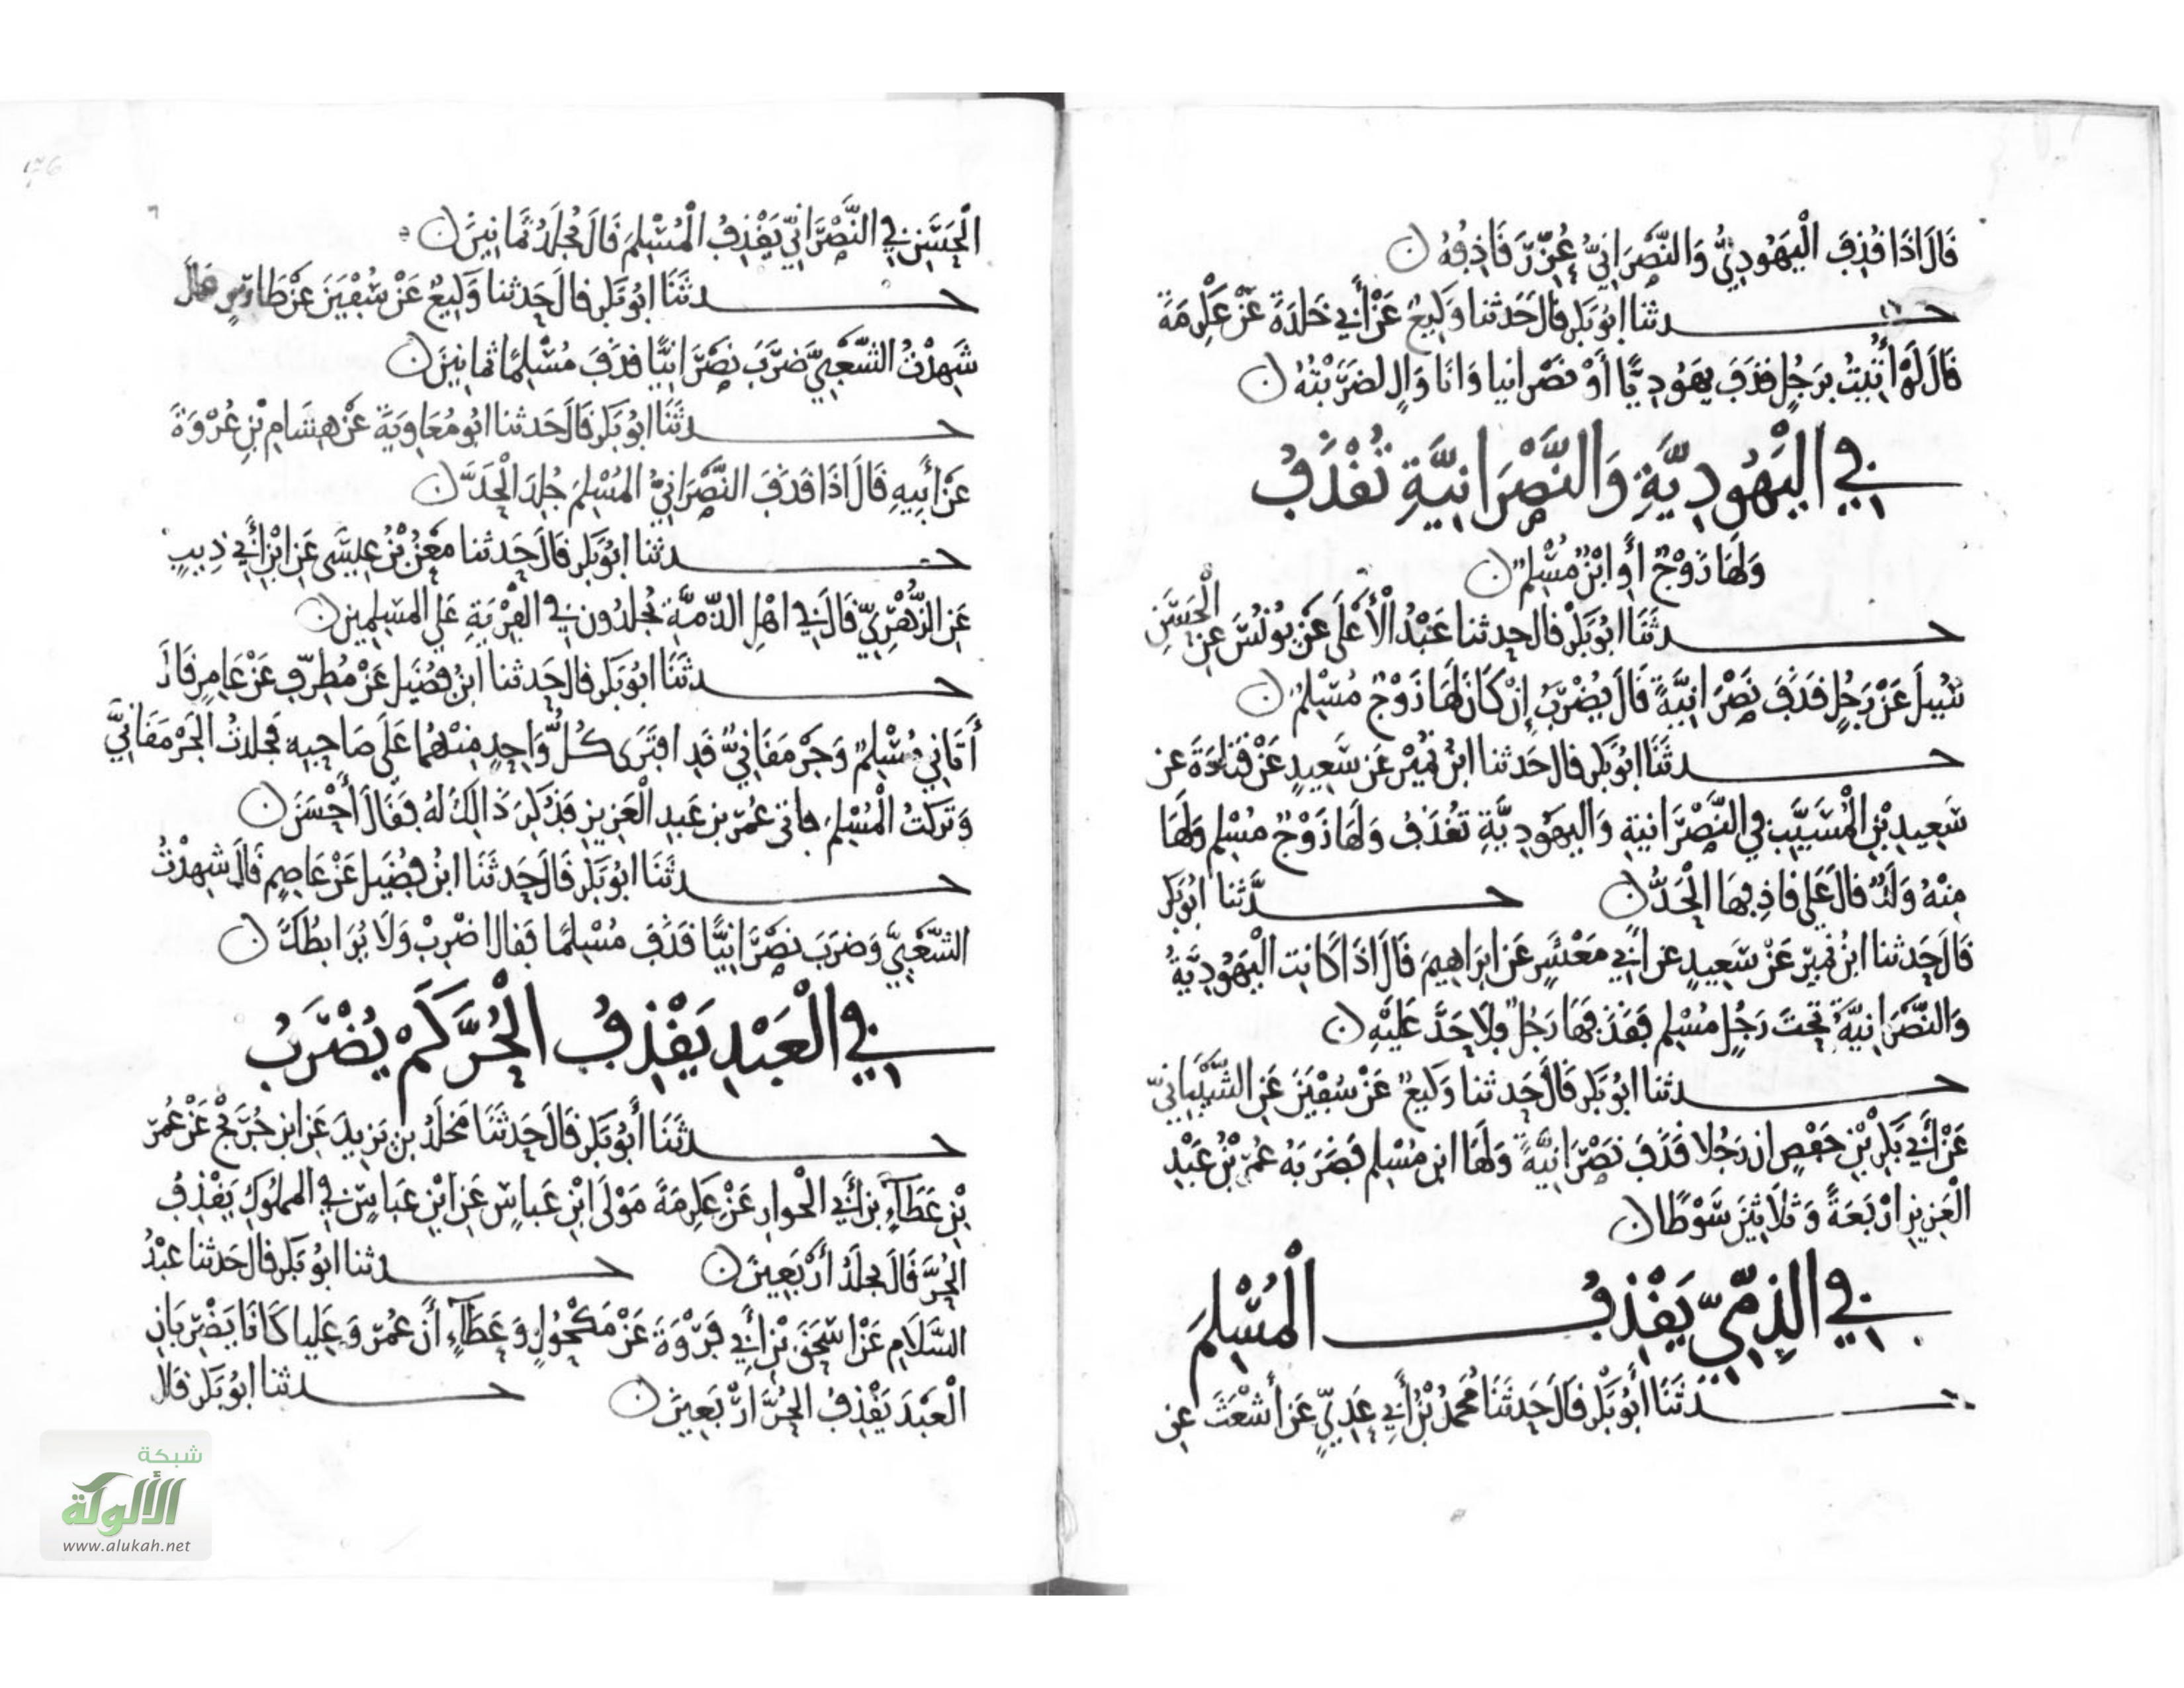 قَالَ اذَا قُذِفَ الْيَهُودِيُّ وَالنَّصْرَانِيُّ عُزِّرَ قَاذِفُهُ
حدثنا ابُو بَكر قالَ حَدثنا وَكِيعٌ عَنْ أَبِي خَلدَةَ عَنْ عِكْرِمَةَ
قَالَ لَوْ أُتِيتُ بِرَجُلٍ قَذَفَ يَهُودِيًّا أَوْ نَصْرانيا وَانَا وَالٍ لضَرَبْتُهُ
في الْيَهُودِيَّةِ وَالنَّصْرَانِيَّةِ تُقْذَفُ
وَلَهَا زَوْجٌ أَوِ ابْنٌ مُسْلِمٌ
حدثَنَا ابُو بَكْر قال حدثنا عَبْدُ الْأَعْلَى عَنْ يُونُسَ عَنِ الْحَسَنِ
سُئِيلَ عَنْ رَجُلٍ قَذَفَ نَصْرَانِيَّةً قَالَ يُضْرَبُ إِنْ كَانَ لَهَا زَوْجٌ مُسْلِمٌ
حدثَنَا ابُو بَكر قال حَدثنا ابْنُ نُمَيْر عَن سَعِيدٍ عَنْ قَتَادَةَ عن
سَعِيدِ بْنِ الْمُسَيَّبِ فِي النَّصْرَانيةِ وَاليهُودِيَّةِ تُقْذَفُ وَلَهَا زَوْجٌ مُسْلِمٌ وَلَهَا
مِنْهُ وَلَدٌ قالَ عَلى قاذِفِهَا الْحَدُّ حدَّثنا ابُو بَكر
قَالَ حَدثنا ابْنُ نُمير عَنْ سَعِيدٍ عن أَبِي مَعْشَرٍ عَن ابرَاهِيمَ قَالَ اذَا كَانت الْيَهُودِيَّةُ
وَالنَّصْرَانِيَّةُ تَحتَ رَجُلٍ مُسْلِمٍ فَقَذَفَهَا رَجُلٌ فَلَا حَدَّ عَلَيْهِ
حدثنا ابُو بَكر قَالَ حَدثنا وَكيعٌ عَنْ سُفْيَنَ عَنِ الشَّيْبَانِيّ
عَنْ أَبِي بَكْرِ بْنِ حَفْصٍ ان رَجُلا قَذَفَ نَصْرَانِيَّةً وَلَهَا ابن مُسْلِم فَضَرَبَهُ عُمَرُ بْنُ عَبْدِ
الْعَزِيزِ ارْبَعَةً وَثَلَاثِينَ سَوْطًا
في الذِّمِّيِّ يَقْذِفُ الْمُسْلِمَ
حدثَنَا أَبُو بَكْر قَالَ حَدثَنَا مُحَمدُ بْنُ أَبِي عَدِيٍّ عَنْ أَشْعَثَ عَنِ
الْحَسَنِ فِي النَّصْرَانِيِّ يَقْذِفُ الْمُسْلِمَ قَالَ يُجلَدُ ثَمَانِينَ
حدثَنَا ابُو بَكر قالَ حَدثنا وَكِيعٌ عَنْ سُفْيَنَ عَنْ طَارِقٍ قالَ
شَهِدْتُ الشَّعْبِيَّ ضَرَبَ نَصْرَانِيًّا قَذَفَ مُسْلِمًا ثمانينَ
حدثَنَا ابُو بَكر قَالَ حَدثنا ابُو مُعَاوِيَةَ عَنْ هِشَامِ بْنِ عُرْوَةَ
عَنْ أَبِيهِ قَالَ اذَا قَذَفَ النَّصْرَانِيُّ المُسْلِمَ جُلِدَ الْحَدَّ
حدثنا ابُو بَكر قَالَ حَدثنا مَعْنُ بْنُ عِيسَى عَنِ ابْنِ أَبِي ذِيبٍ
عَنِ الزُّهْرِيِّ قَالَ فِي اهْلِ الذّمةِ يُجلدُون فِي الفِرْيَةِ عَلى المسْلِمِين
حدثَنَا ابُو بَكر قالَ حَدثنا ابْنُ فُضَيل عَنْ مُطرِّفٍ عَنْ عَامِرٍ قَالَ
أَتَانِي مُسْلِمٌ وَجَرْمَقَانِيٌّ قَدِ افتَرَى كُلُّ وَاحِدٍ مِنْهُمَا عَلَى صَاحِبِهِ فَجَلدتُ الْجَرْمَقَانِيَّ
وَتَركتُ الْمُسْلِمَ فاتى عُمَر بن عَبدِ الْعَزِيزِ فَذُكِرَ ذَالِكَ لَهُ فَقَالَ أَحْسَنَ
حدثَنَا ابُو بَكر قَالَ حَدثَنَا ابْنُ فُضَيل عَنْ عَاصِمٍ قَالَ شهِدْتُ
الشَّعْبِيَّ وَضَرَبَ نَصْرَانِيًّا قَذَفَ مُسْلِمًا فَقال اضْرِبْ وَلَا يُرَ ابطُكَ
في الْعَبْدِ يَقْذِفُ الْحُرَّ كَمْ يُضْرَبُ
حدثَنَا أَبُو بَكر قَالَ حَدثَنَا مَخْلَدُ بن يَزِيدَ عَنِ ابْنِ جُرَيْجٍ عَنْ عُمَرَ
بْنِ عَطَآءِ بن أَبِي الْخوارِ عَنْ عِكرِمَةَ مَوْلَى ابْنِ عَبَاسٍ عَنِ ابْنِ عَبَاسٍ فِي المملُوكِ يَقْذِفُ
الحُرَّ قَالَ يُجلَدُ أَرْبَعِينَ حدثنا ابُو بَكر قالَ حَدثنا عَبْدُ
السَّلَامِ عَنْ اسْحَقَ بْنِ أَبِي فَرْوَةَ عَنْ مَكْحُولٍ وَعَطَآءٍ أَنّ عُمَرَ وَعَلِيا كَانَا يَضْرِبَانِ
الْعَبْدَ يَقْذِفُ الْحُرَّ ارْبَعِينَ حدثنا ابُو بَكر قال
شبكة
الألوكة
www.alukah.net